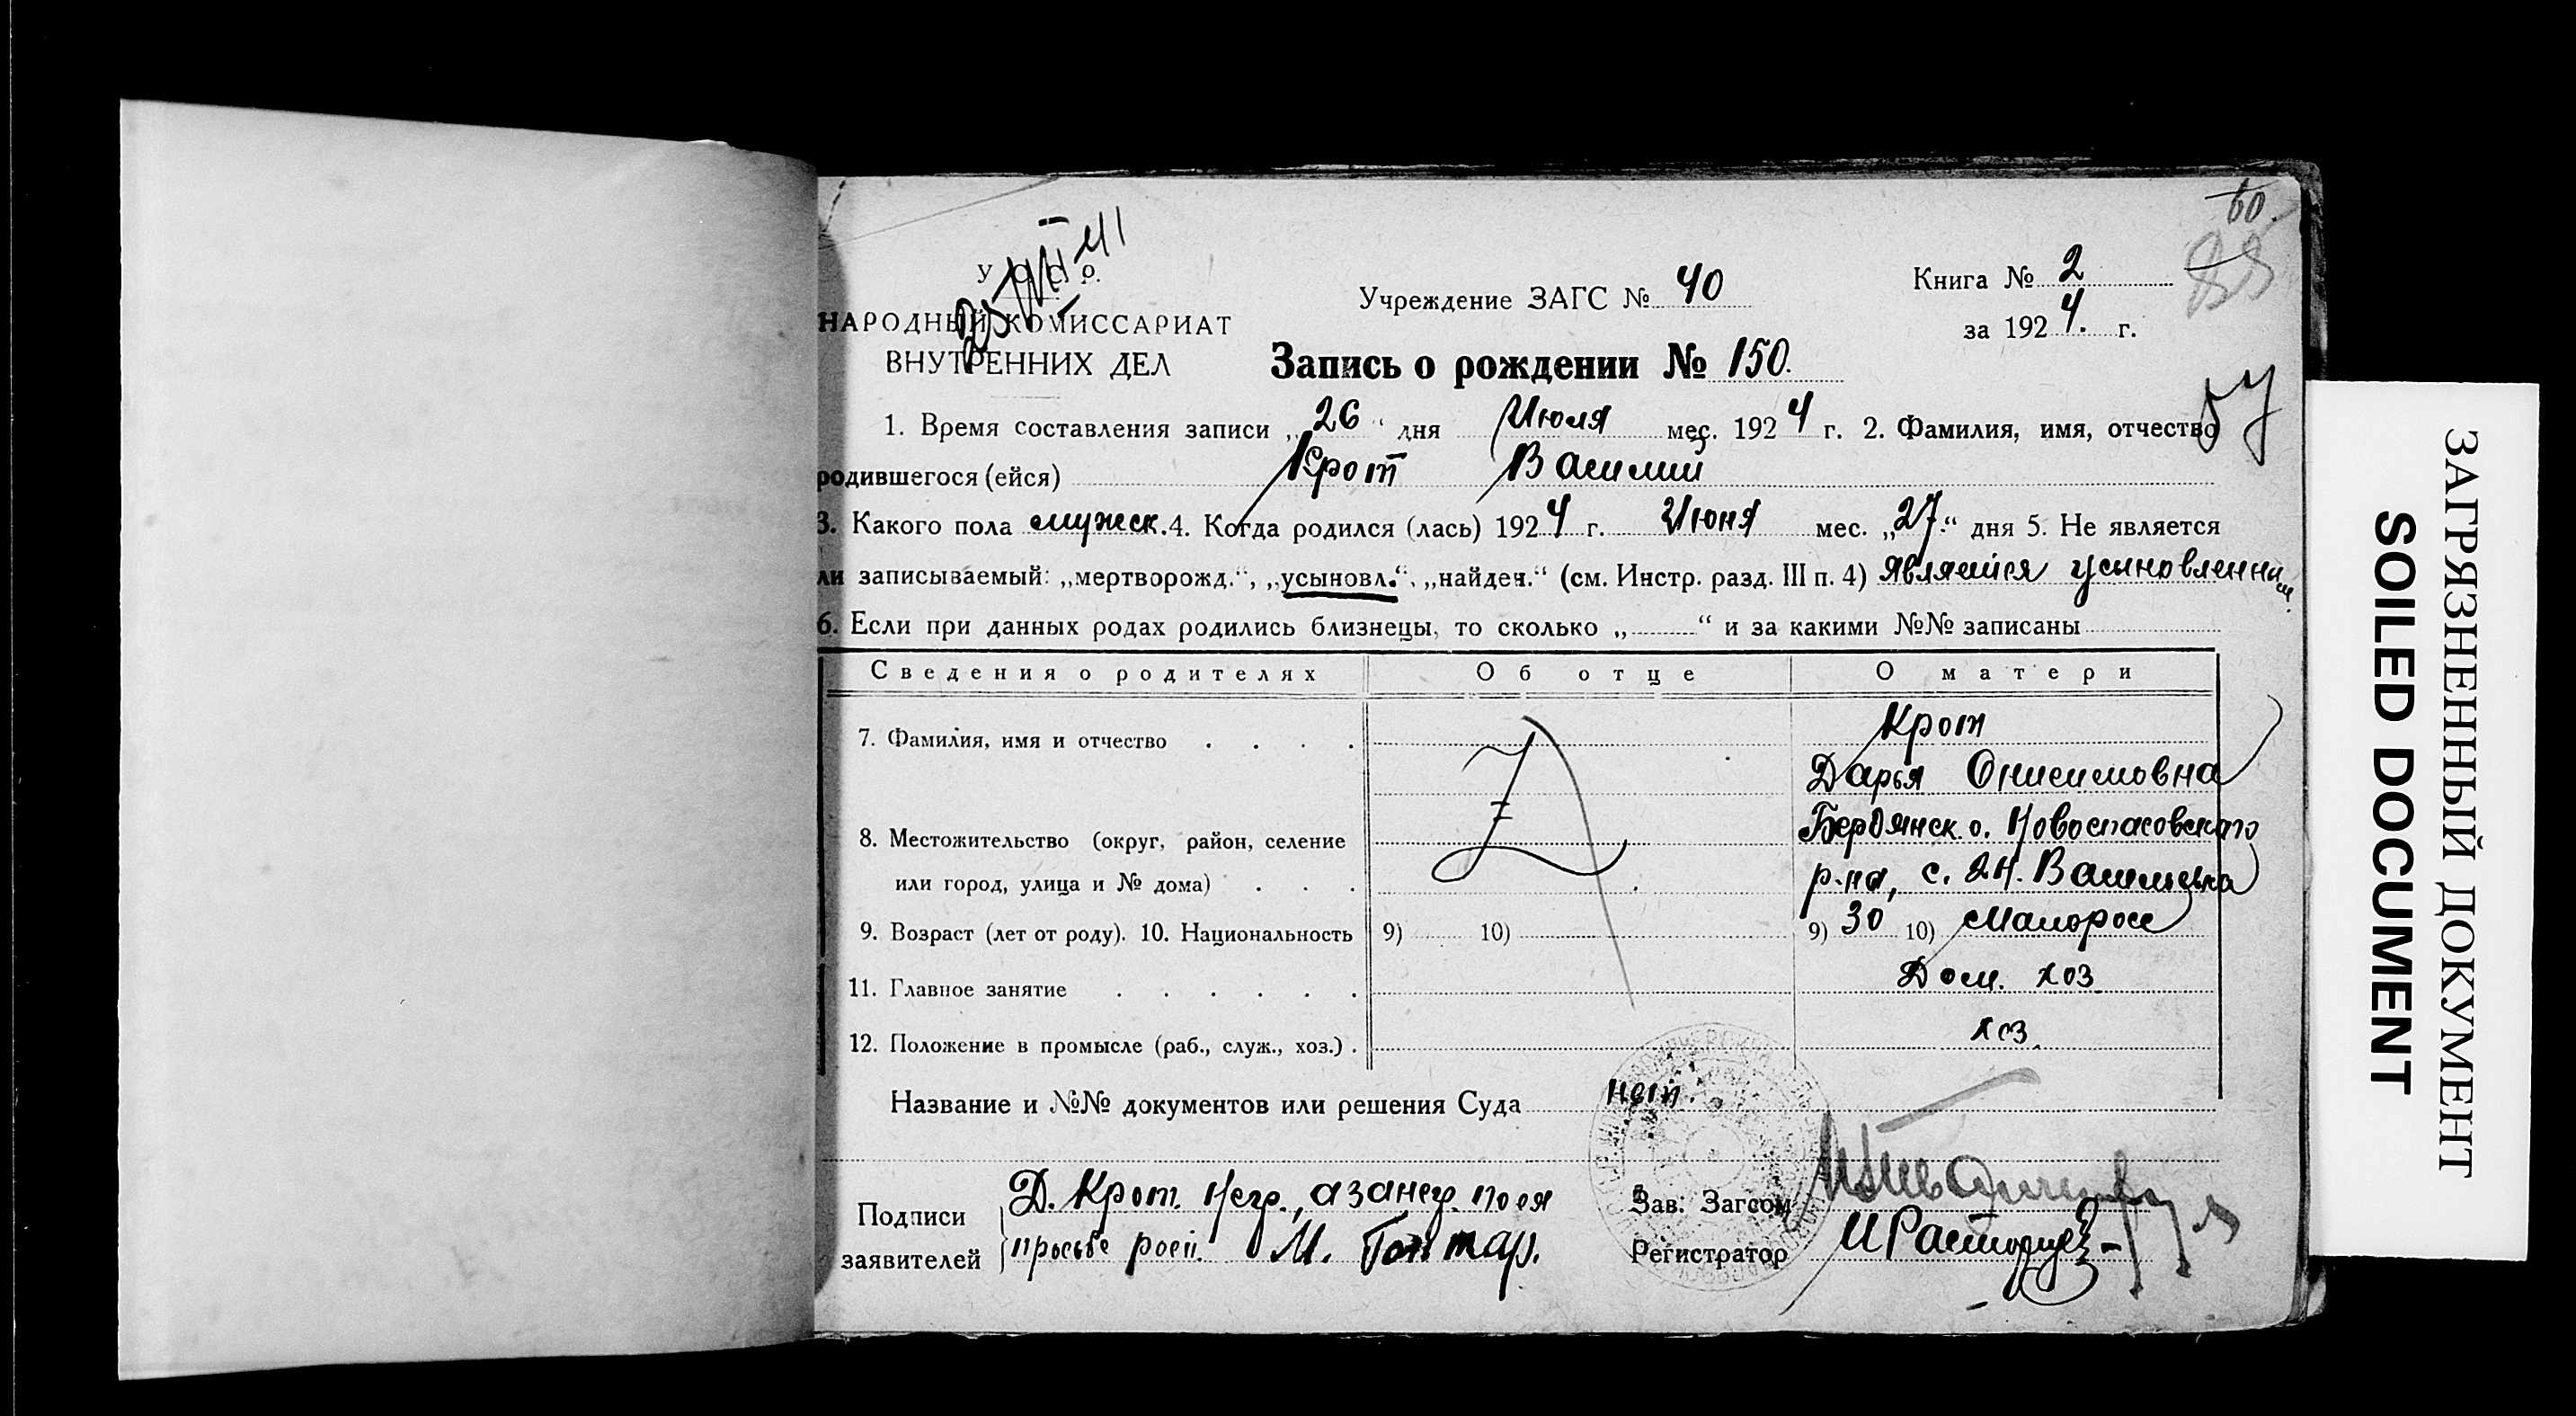 60.
У С С Р.
Учреждение ЗАГС № 40
Книга № 2
за 1924. г.
НАРОДНЫЙ КОМИССАРИАТ
ВНУТРЕННИХ ДЕЛ
Запись о рождении № 150.
57
1. Время составления записи „26“ дня Июля мес. 1924 г. 2. Фамилия, имя, отчество
родившегося (ейся) Крот Василий
3. Какого пола мужеск. 4. Когда родился (лась) 1924 г. Июня мес. „27.“ дня 5. Не является
ли записываемый: „мертворожд.“, „усыновл.“, „найден.“ (см. Инстр. разд. III п. 4) является усыновленным.
6. Если при данных родах родились близнецы, то сколько „ “ и за какими №№ записаны
Сведения о родителях Об отце О матери
7. Фамилия, имя и отчество . . . . Крот
Дарья Онисимовна
8. Местожительство (округ, район, селение Бердянск. о. Новоспасовского
или город, улица и № дома) . . . р-на, с. 2Н. Васильевка
9. Возраст (лет от роду). 10. Национальность 9) 10) 9) 30 10) Малоросс
11. Главное занятие . . . . . . Дом. хоз.
12. Положение в промысле (раб., служ., хоз.) . хоз.
Название и №№ документов или решения Суда нет.
Подписи Д. Крот. негр., а за негр. по ея
заявителей просьбе росп. М. Гонтар.
Зав. Загсом
Регистратор
ЗАГРЯЗНЕННЫЙ ДОКУМЕНТ
SOILED DOCUMENT